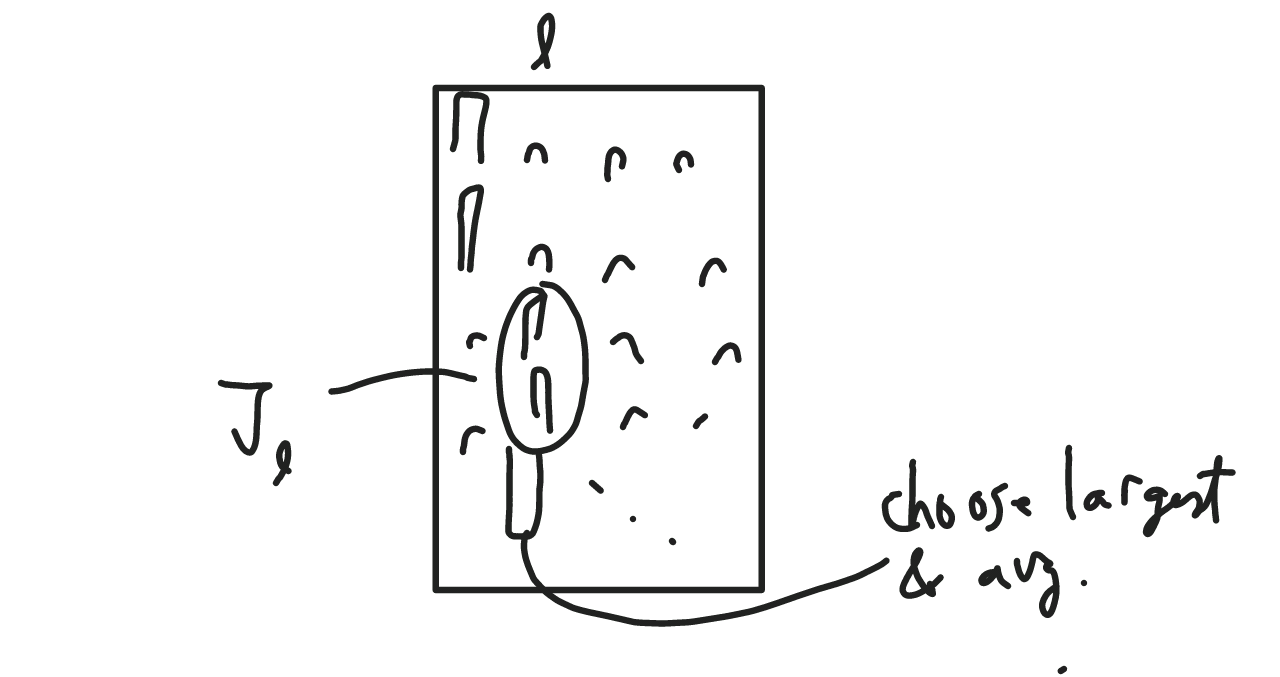 l
J_l
choose largest
& avg.